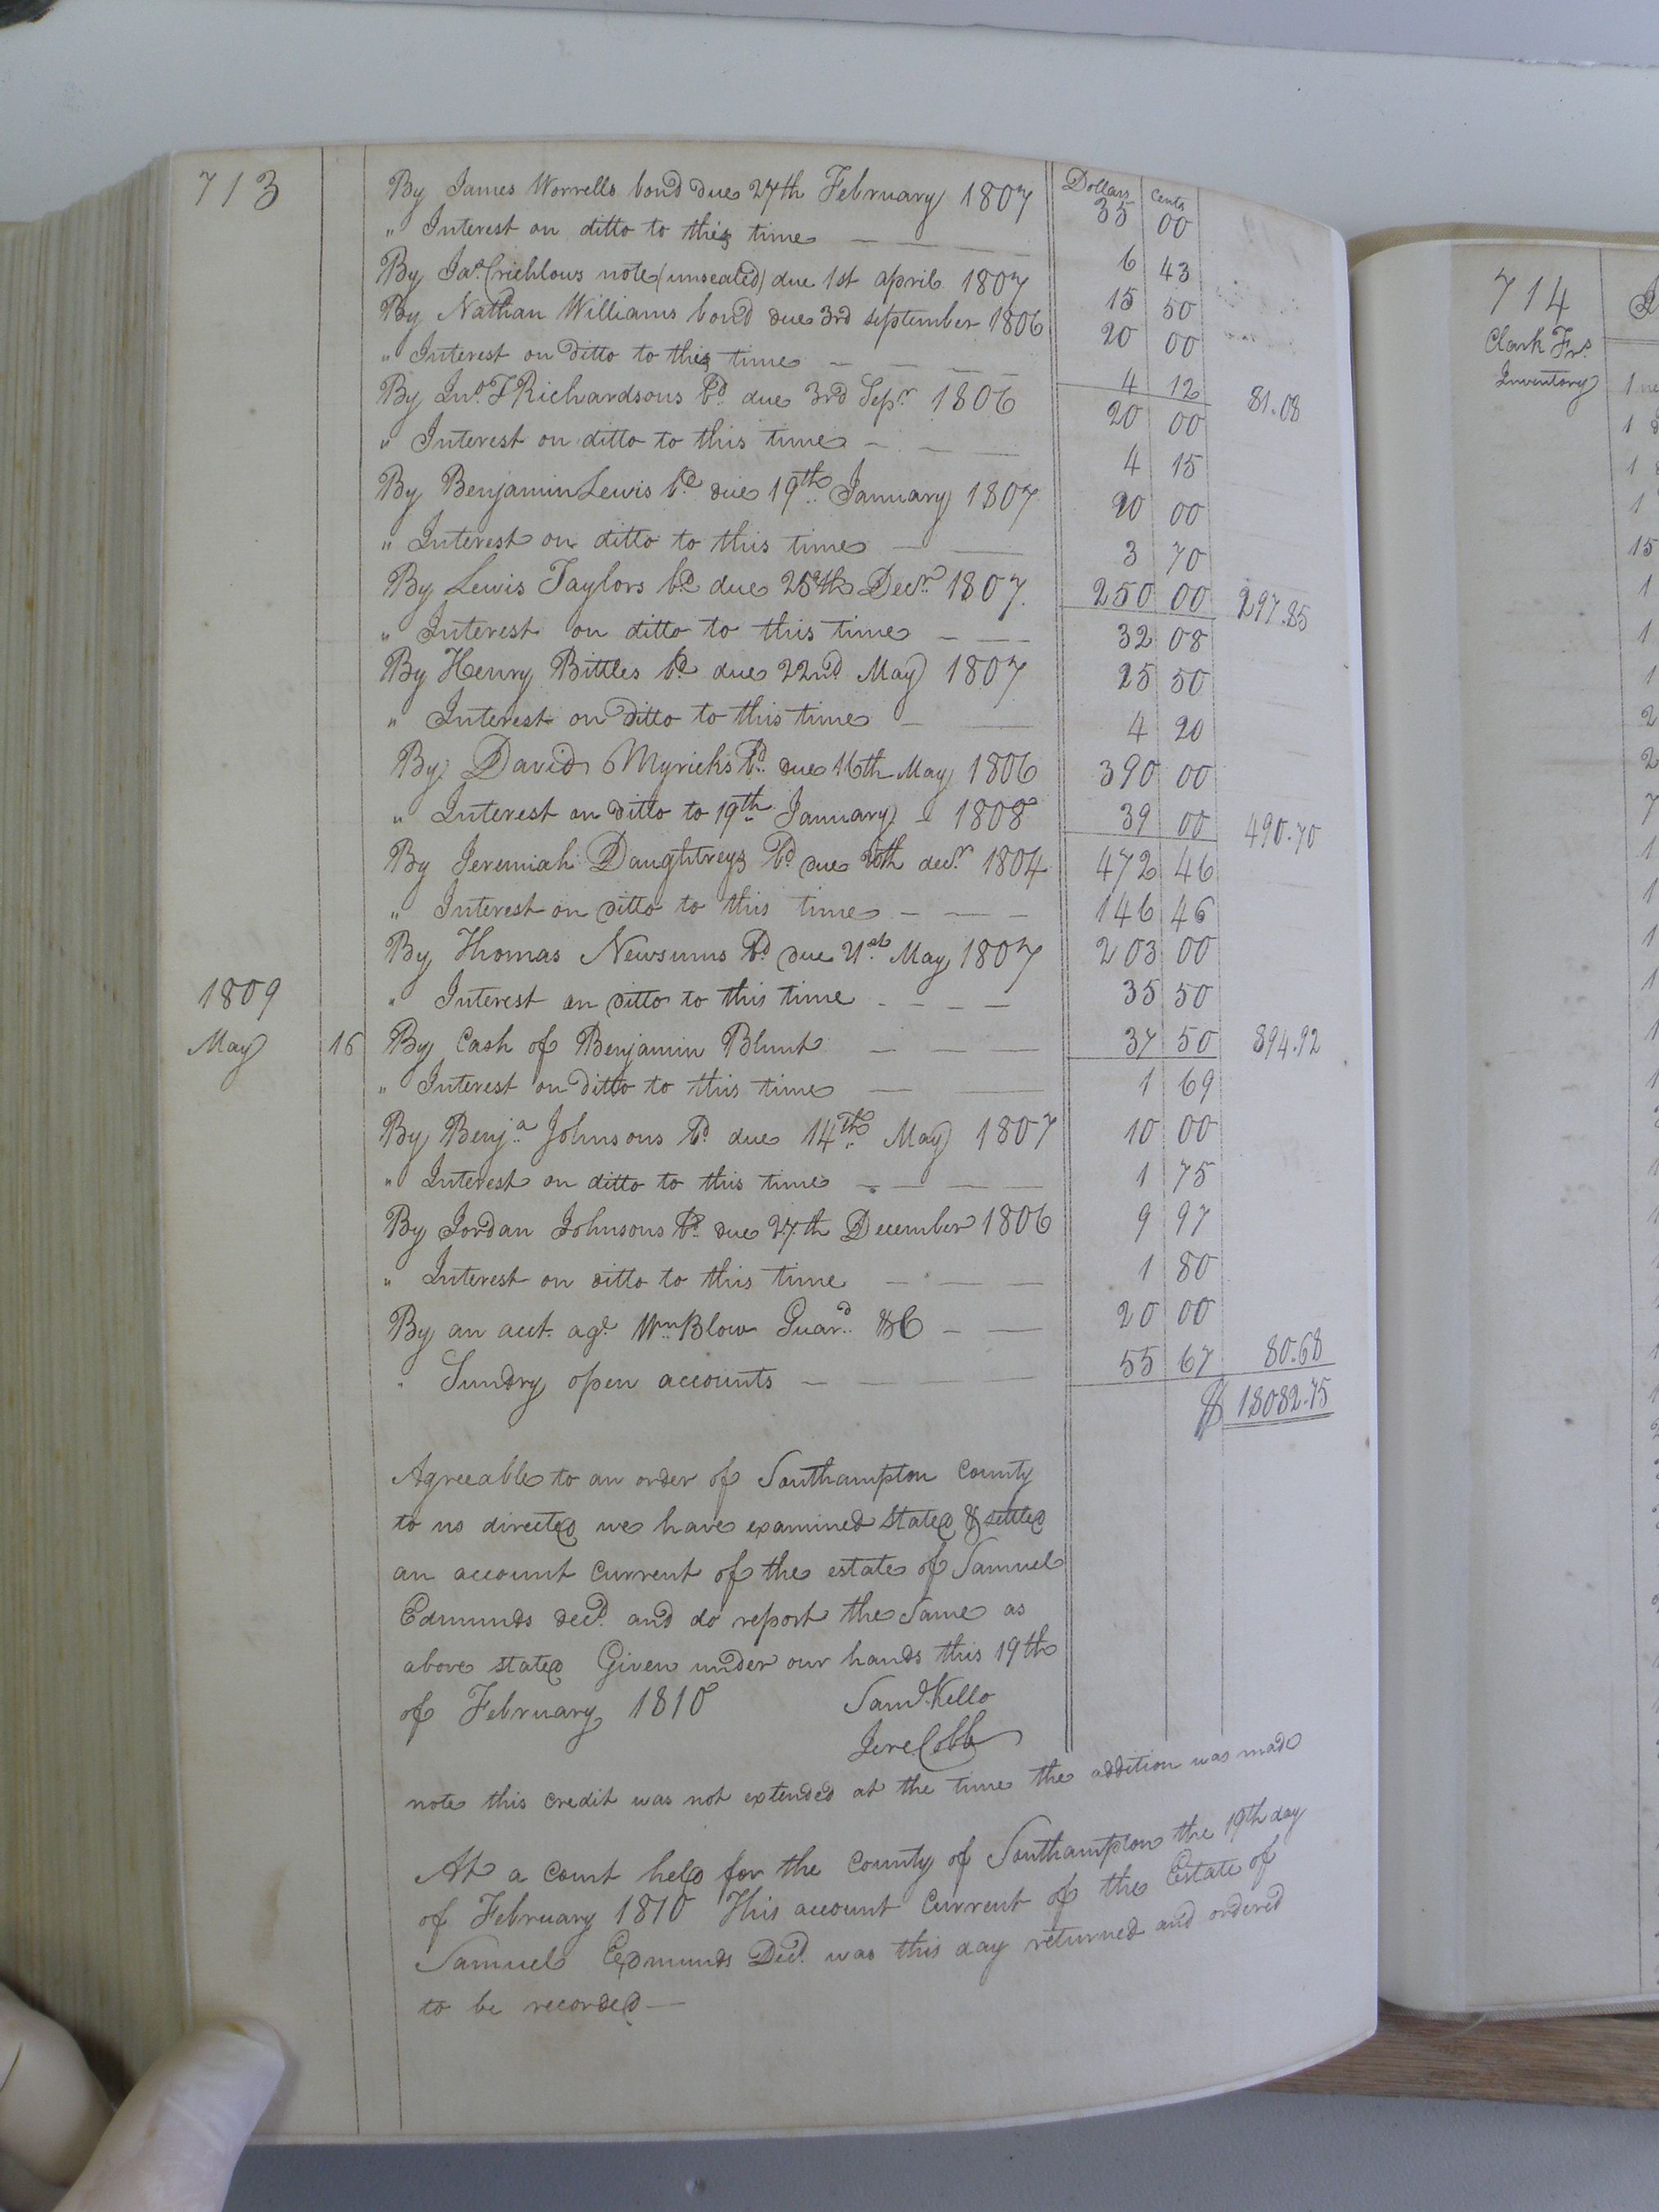 713
Dollars Cents
By James Worrells bond due 27th February 1807 35 00
" Interest on ditto to this time 6 43
By Jas. Crichlows note (unsealed) due 1st april 1807 15 50
By Nathan Williams bond due 3rd september 1806 20 00
" Interest on ditto to this time 4 12 81.08
By Jno. T Richardsons bd. due 3rd Sepr 1806 20 00
" Interest on ditto to this time 4 15
By Benjamin Lewis bd. due 19th January 1807 20 00
" Interest on ditto to this time 3 70
By Lewis Taylors bd. due 25th Decr. 1807. 250 00 297.85
" Interest on ditto to this time 32 08
By Henry Bittles bd. due 22nd May 1807 25 50
" Interest on ditto to this time 4 20
By David Myricks bd. due 16th May 1806 390 00
" Interest on ditto to 19th January 1808 39 00 490.70
By Jeremiah Daughtreys bd due decr. 1804 472 46
" Interest on ditto to this time 146 46
By Thomas Newsums bd. due 21st. May 1807 203 00
1809
" Interest on ditto to this time 35 50
May 16 By Cash of Benjamin Blunt 37 50 894.92
" Interest on ditto to this time 1 69
By Benja. Johnsons bd. due 14th. May 1807 10 00
" Interest on ditto to this time 1 75
By Jordan Johnsons bd. due 27th December 1806 9 97
" Interest on ditto to this time 1 80
By an acct. agt. Wm Blow Guard. &C 20 00
" Sundry open accounts 55 67 80.68
$ 18082.75
Agreeable to an order of Southampton County
to us directed we have examined stated & settled
an account current of the estate of Samuel
Edmunds decd. and do report the same as
above stated Given under our hands this 19th
of February 1810 Saml. Kello
Jere Cobb
note this credit was not extended at the time the addition was made
At a court held for the County of Southampton the 19th day
of February 1810 This account Current of the Estate of
Samuel Edmunds Decd. was this day returned and ordered
to be recorded
714
Clark Frs.
Inventory